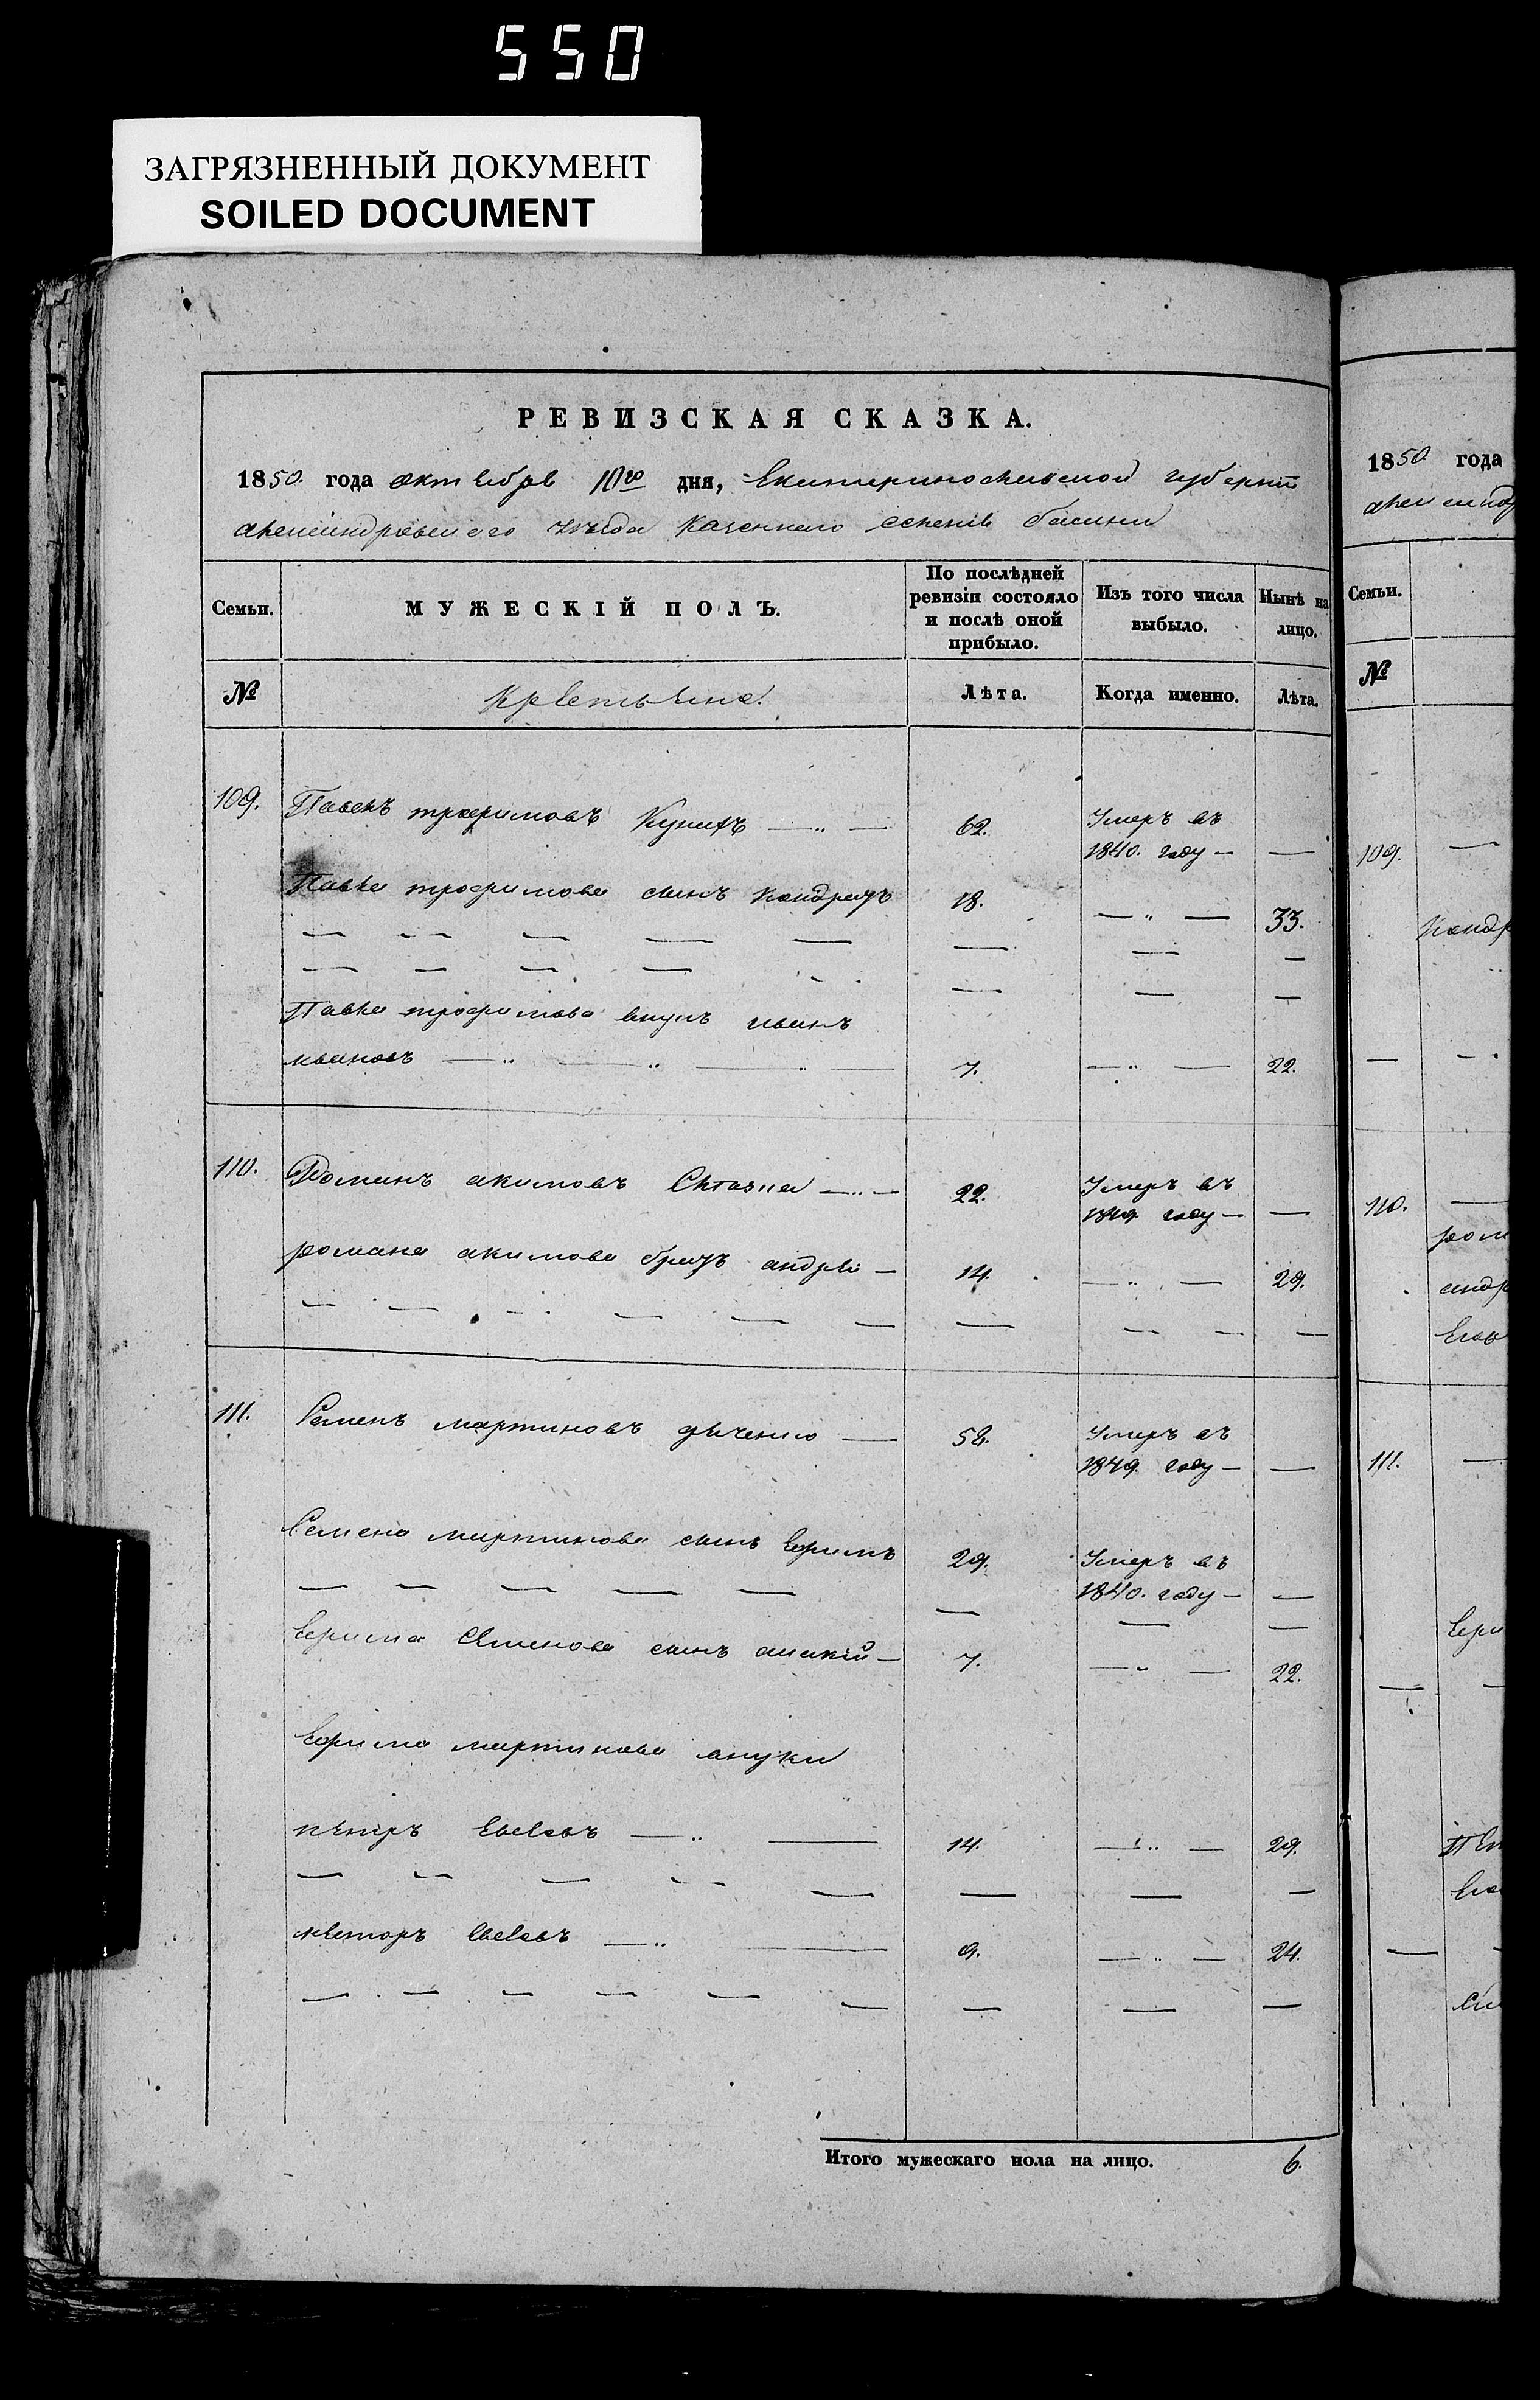 550
ЗАГРЯЗНЕННЫЙ ДОКУМЕНТ
SOILED DOCUMENT
РЕВИЗСКАЯ СКАЗКА.
1850 года октября 10го дня, Екатеринославской губернии
александровского уезда казенного селенія
Семьи.
МУЖЕСКІЙ ПОЛЪ.
По послѣдней ревизіи состояло и послѣ оной прибыло.
Изъ того числа выбыло.
Нынѣ на лицо.
№
Крестьяне.
Лѣта.
Когда именно.
Лѣта.
109. Павелъ трофимовъ 62. Умеръ въ
1840. году — —
Павла трофимова сынъ Кондратъ 18. — " — 33.
Павла трофимова внукъ иванъ
ивановъ — " — " — " — 7. — " — 22.
110. Романъ акимовъ 22. Умеръ въ
1849 году — —
романа акимова братъ андрей — 14. — " — 29.
111. Семенъ мартиновъ — 52. Умеръ въ
1849. году — —
Семена мартинова сынъ Ефимъ 29. Умеръ въ
1840. году — —
Ефима Семенова сынъ — 7. — " — 22.
Ефима мартинова внуки
петръ — " — 14. — " — 29.
несторъ — " — 9. — " — 24.
Итого мужескаго пола на лицо. 6.
1850 года
Семьи.
№
109. —
Кондр
110. —
ром
андр
111. —